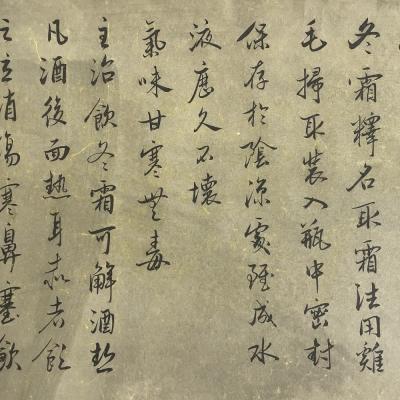 冬霜釋名取霜法用雞
毛掃取裝入瓶中密封
保存於陰涼處雖成水
液應久不壞
氣味甘寒無毒
主治飲冬霜可解酒熱
凡酒後面熱耳赤者飲
之立消傷寒鼻塞飲